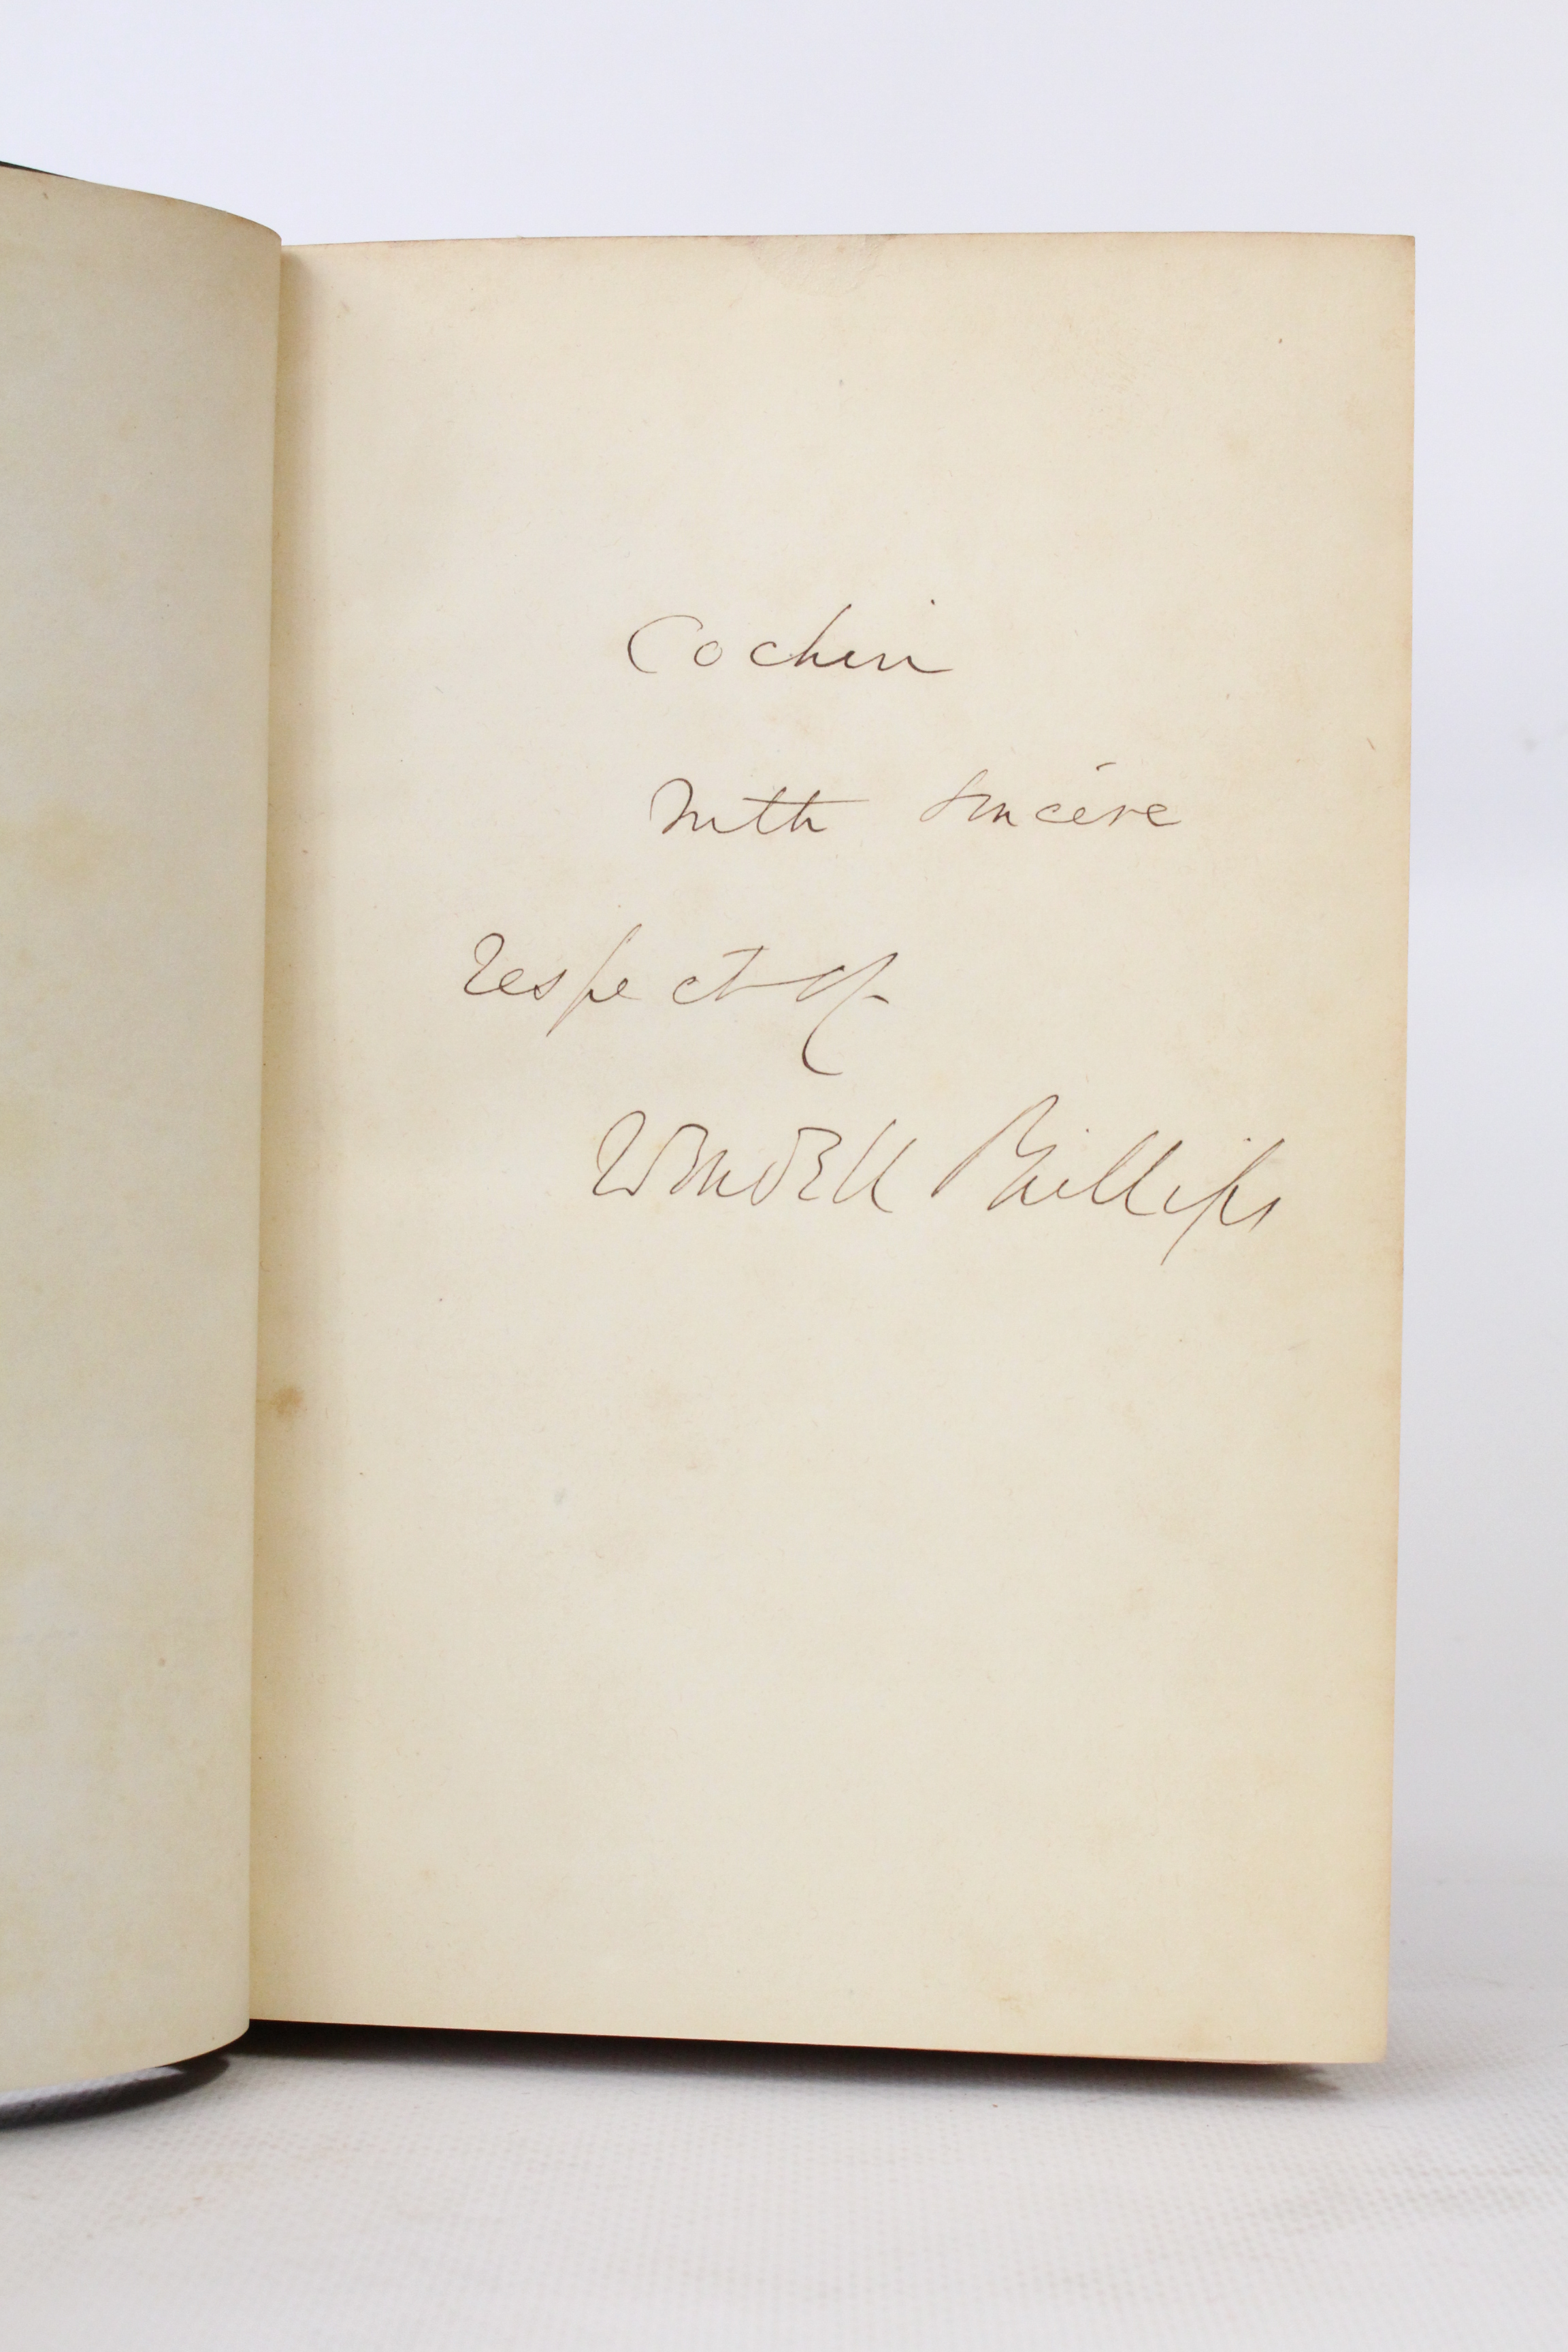 Cochin
with sincere
respect of
Wendell Phillips